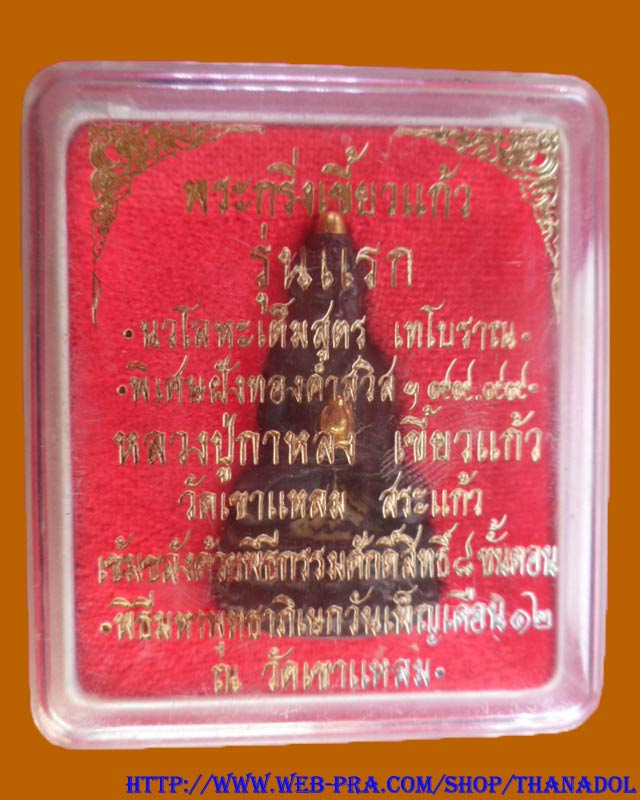 พระกริ่งเขี้ยวแก้ว
รุ่นแรก
·นวโลหะเต็มสูตร เทโบราณ·
·พิเศษฝังทองคำสวิส ๆ ๙๙.๙๙·
หลวงปู่กาหลง เขี้ยวแก้ว
วัดเขาแหลม สระแก้ว
เข้มขลังด้วยพิธีกรรมศักดิ์สิทธิ์ ๘ ขั้นตอน
·พิธีมหาพุทธาภิเษกวันเพ็ญเดือน ๑๒
ณ วัดเขาแหลม·
HTTP://WWW.WEB-PRA.COM/SHOP/THANADOL